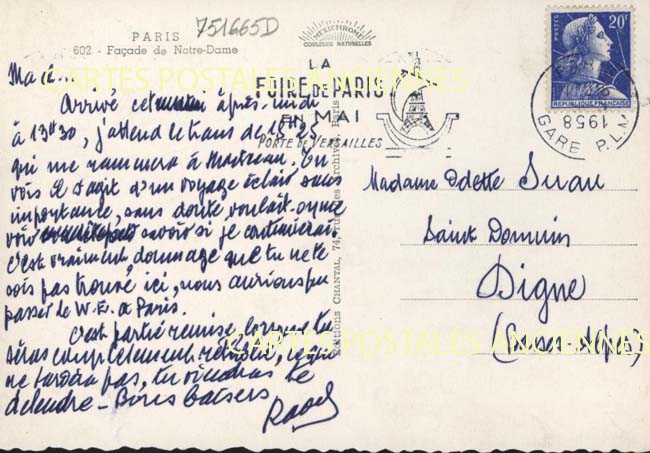 PARIS
751665D
602 - Façade de Notre-Dame
MEXICHROME
COULEURS NATURELLES
LA
FOIRE DE PARIS
EN MAI
PORTE DE VERSAILLES
20F
REPUBLIQUE FRANÇAISE
1958
GARE P.L.M
CARTES POSTALES ANCIENNES
Arrivé cet après-midi
à 13h30, j'attend le train de 18h25
qui me ramènera à
vois il s'agit d'un voyage éclair sans
importance, sans doute voulait-on me
voir savoir si je continuerai.
C'est vraiment dommage que tu ne te
sois pas trouvé ici, nous aurions pu
passer de W.E. à Paris.
C'est partie remise, lorsque tu
seras complètement
ne pas, tu viendras te
détendre - Bons baisers
Raoul
Editions CHANTAL, 74, rue des Archives, Paris
Madame Odette
Saint Domnin
Digne
(Basses-Alpes)
CARTES POSTALES ANCIENNES